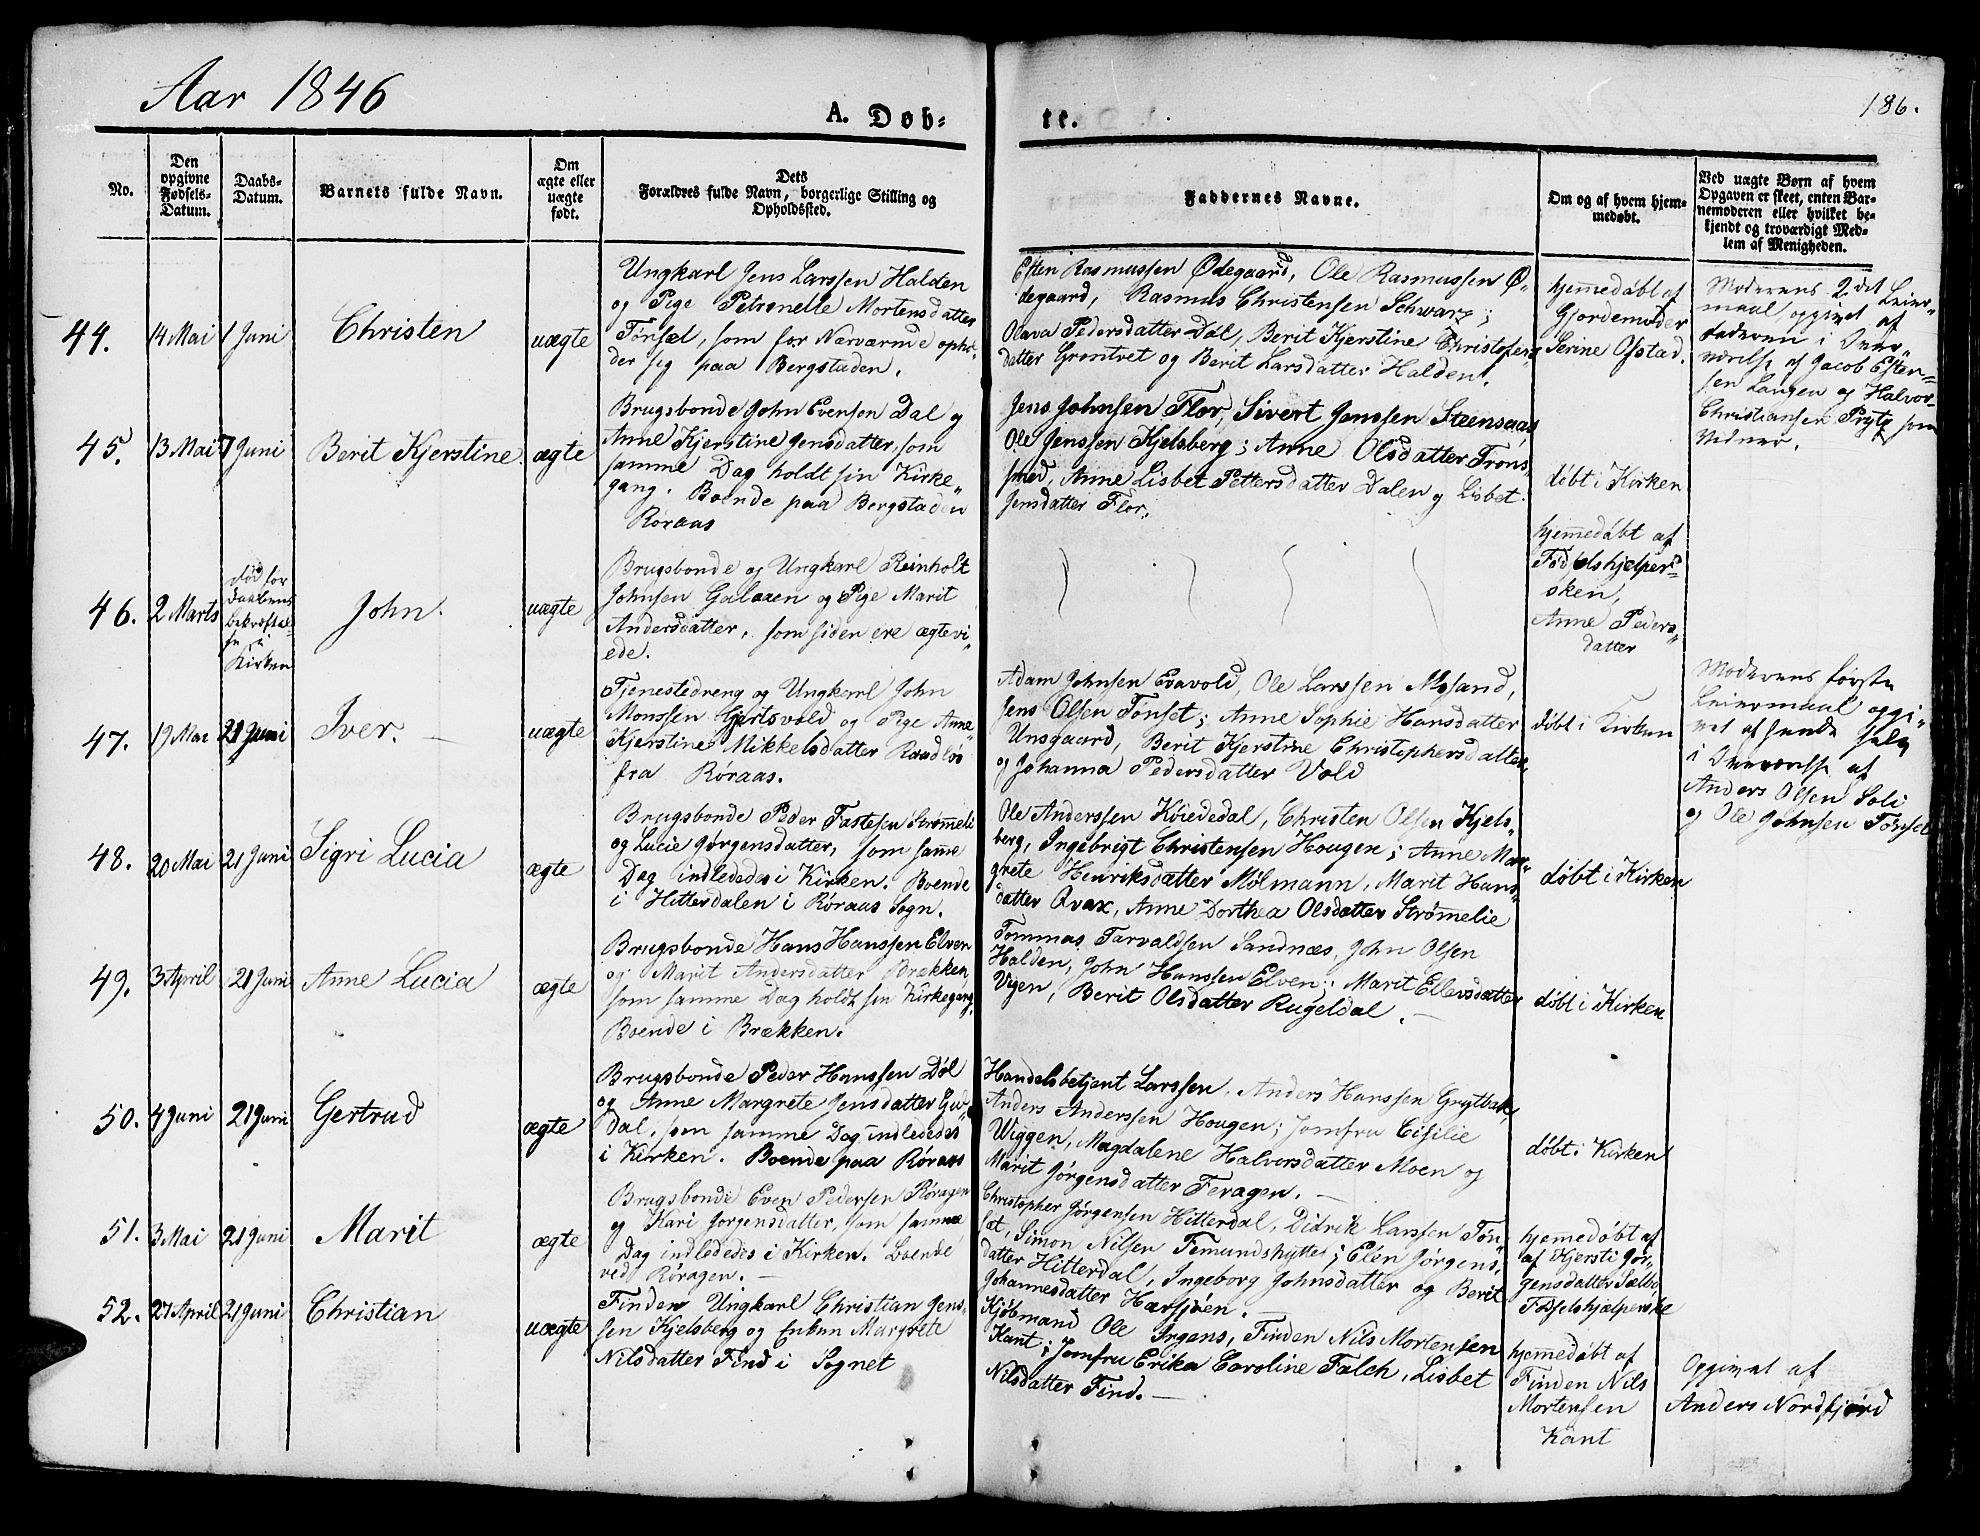 Aar 1846
A. Døb-
te.
186.
No.
Den opgivne Fødsels-Datum.
Daabs-Datum.
Barnets fulde Navn.
Om ægte eller uægte født.
Dets
Forældres fulde Navn, borgerlige Stilling og
Opholdssted.
Faddernes Navne.
Om og af hvem hjem-
medøbt.
Ved uægte Børn af hvem
Opgaven er skeet, enten Bar-
nemoderen eller hvilket be-
kjendt og troværdigt Med-
lem af Menigheden.
44.
14 Mai
1 Juni
Christen
uægte
Ungkarl Jens Larssen Halden
og Pige Petronelle Mortensdatter
Tønset, som for Nærværende ophol
der sig paa Bergstaden.
Esten Rasmussen Ødegaard, Ole Rasmussen Ø-
degaard, Rasmus Christensen Schwarz;
Olava Pedersdatter Dal, Berit Kjerstine Christofers
datter Grøntvet og Berit Larsdatter Halden.
hjemmedøbt af
Gjordemoder
Serine Ofstad.
Moderens 2det Leier-
maal, opgivet af
Faderen i Over-
værelse af Jacob Esten-
sen Langen og Halvor
Christiansen Prytz som
Vidner.
45.
13 Mai
7 Juni
Berit Kjerstine
ægte
Brugsbonde John Evensen Dal og
Anne Kjerstine Jensdatter, som
samme Dag holdt sin Kirke-
gang. Boende paa Bergstaden
Røraas
Jens Johnsen Flor, Sivert Jenssen Steensaas
Ole Jenssen Kjelsberg; Anne Olsdatter Trøns-
med, Anne Lisbet Pettersdatter Dalen og Lisbet
Jensdatter Flor.
døbt i Kirken
46.
2 Marts
død før
Daabens
bekræftel-
se i
Kirken
John.
uægte
Brugsbonde og Ungkarl Reinholt
Johnsen Galaaen og Pige Marit
Andersdatter, som siden ere ægtevi
ede.
hjemmedøbt af
Fødselshjelper-
sken,
Anne Peders-
datter
47.
19 Mai
21 Juni
Iver.
uægte
Tjenestedreng og Ungkarl John
Monssen Gjertsvold og Pige Anne
Kjerstine Mikkelsdatter Raadløs
fra Røraas.
Adam Johnsen Evavold, Ole Larssen Aasand,
Jens Olsen Tønset; Anne Sophie Hansdatter
Unsgaard, Berit Kjerstine Christophersdatter
og Johanna Pedersdatter Vold
døbt i Kirken
Moderens første
Leiermaal opgi-
vet af hende selv
i Overværelse af
Anders Olsen Soli
og Ole Johnsen Tønset
48.
20 Mai
21 Juni
Sigri Lucia
ægte
Brugsbonde Peder Fastesen Strømeli
og Lucie Jørgensdatter, som samme
Dag indlededes i Kirken. Boende
i Hitterdalen i Røraas Sogn.
Ole Anderssen Køiedal, Christen Olsen Kjels-
berg, Ingebrigt Christensen Hougen; Anne Mar-
grete Henriksdatter Mølmann, Marit Hans-
datter Qvax, Anne Dorthea Olsdatter Strømelie
døbt i Kirken
49.
3 April
21 Juni
Anne Lucia
ægte
Brugsbonde Hans Hanssen Elven
og Marit Andersdatter Brækken
som samme Dag holdt sin Kirkegang.
Boende i Brækken.
Tommas Tarvaldsen Sandnæs, John Olsen
Halden, John Hanssen Elven; Marit Ellevsdatter
Vigen, Berit Olsdatter Rugeldal.
døbt i Kirken
50.
4 Juni
21 Juni
Gertrud
ægte
Brugsbonde Peder Hanssen Døl
og Anne Margrete Jensdatter Gul
dal, som samme Dag indlededes
i Kirken. Boende paa Røraas
Handelsbetjent Larssen, Anders Hanssen Grytbak,
Anders Anderssen Hougen; Jomfru Cisilie
Wiggen, Magdalene Halvorsdatter Moen og
Marit Jørgensdatter Feragen.
døbt i Kirken
51.
3 Mai
21 Juni
Marit
ægte
Brugsbonde Even Pedersen Røragen
og Kari Jørgensdatter, som samme
Dag indlededes i Kirken. Boende
ved Røragen.
Christopher Jørgensen Hitterdal, Didrik Larssen Tøn
set, Simon Nilsen Femundshytte; Elen Jørgens-
datter Hitterdal, Ingeborg Johnsdatter og Berit
Johannesdatter Harsjøen.
hjemmedøbt af
af Kjersti Jør-
gensdatter Sælbo
Fødselshjælperske
52.
27 April
21 Juni
Christian
uægte
Finden Ungkarl Christian Jens-
sen Kjelsberg og Enkun Margrete
Nilsdatter Find i Sognet
Kjøbmand Ole Irgens, Finden Nils Mortensen
Kant; Jomfru Erika Caroline Falch, Lisbet
Nilsdatter Find.
hjemmedøbt af
Finden Nils
Mortensen
Kant
Opgivet af
Anders Nordfjørd